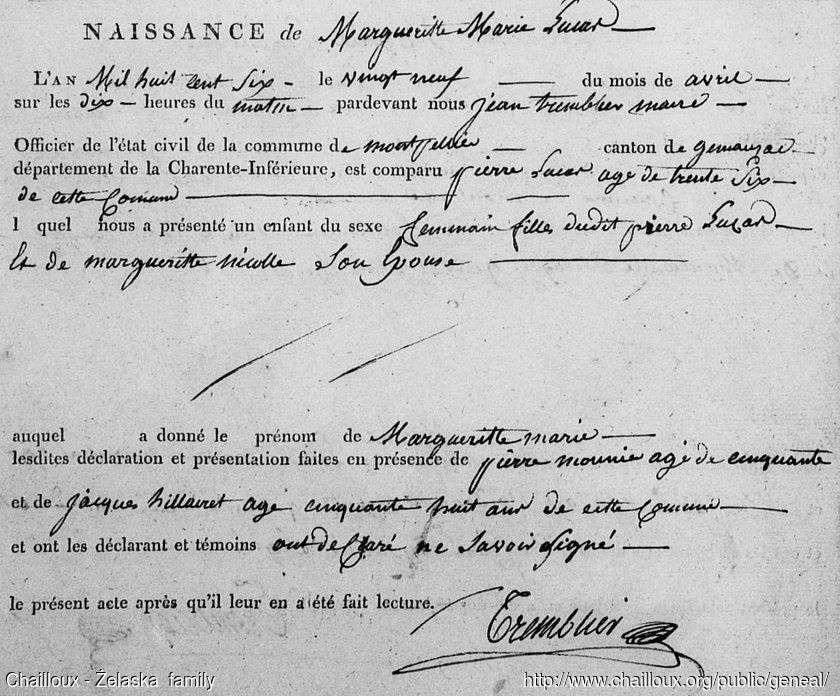 NAISSANCE de Margueritte Marie Lucas
L'AN Mil huit cent Six le vingt neuf du mois de avril
sur les dix heures du matin pardevant nous jean tremblier maire
Officier de l'état civil de la commune de montpellier canton de gemauzac
département de la Charente-Inférieure, est comparu pierre Lucas age de trente Six
de cette Comune
l quel nous a présenté un enfant du sexe feminain filles dudit pierre Lucas
Et de margueritte nicolle Son Epouse
auquel a donné le prénom de Margueritte marie
lesdites déclaration et présentation faites en présence de pierre mounie agé de cinquante
et de jacques hillairet age cinquante huit ans de cette Comune
et ont les déclarant et témoins ont declaré ne Savoir Signé
le présent acte après qu'il leur en a été fait lecture.
Tremblier
Chailloux - Želaska family http://www.chailloux.org/public/geneal/